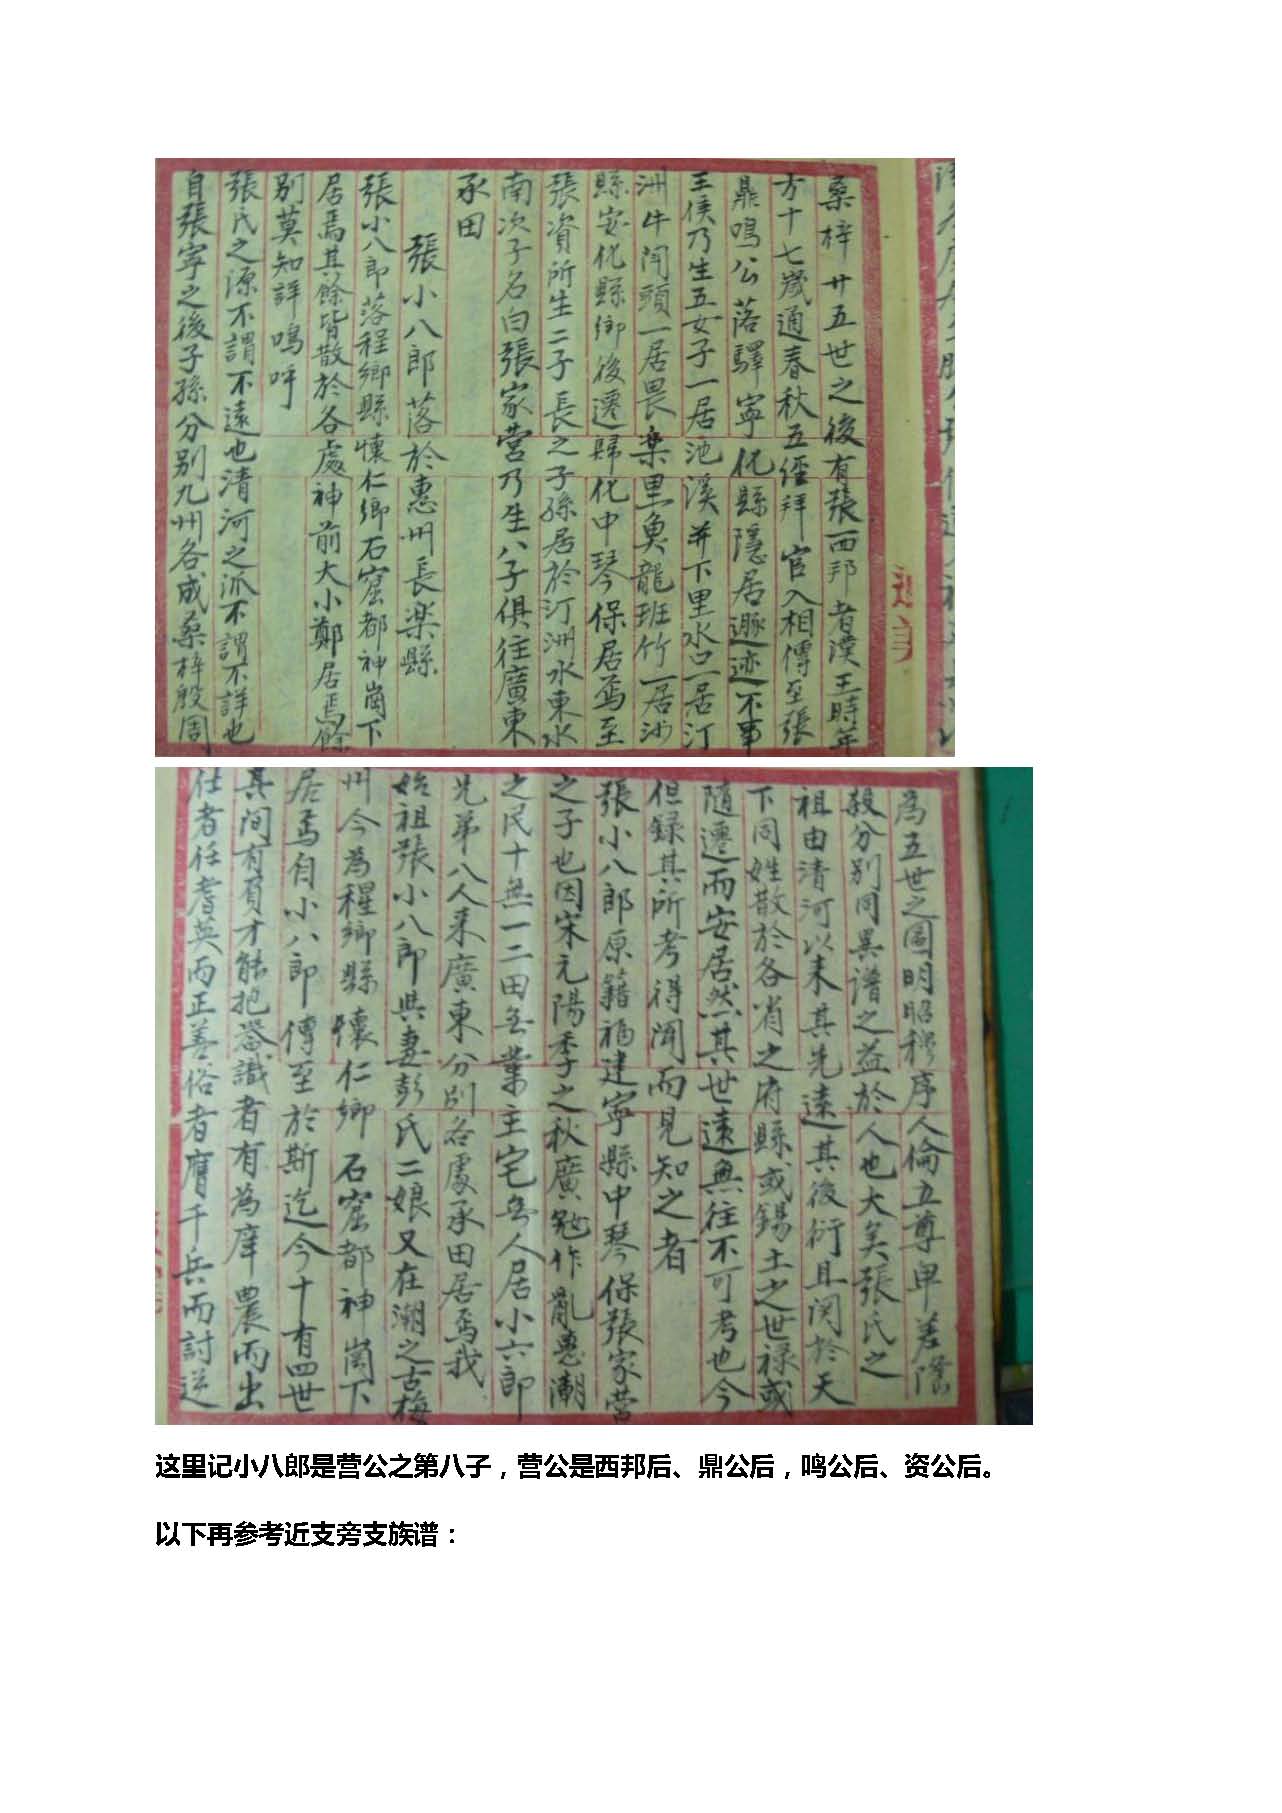 桑梓廿五世之後有張西邦者漢王時年
方十七歲通春秋五經拜官入相傳至張
鼎鳴公落驛寧化縣隱居遯迹不事
王侯乃生五女子一居池溪并下里水口一居汀
洲牛閂頭一居畏楽里魚龍班竹一居沙
縣安化縣鄉後遷歸化中琴保居焉至
張資所生二子長之子孫居於汀洲水東水
南次子名白張家營乃生八子俱往廣東
承田
張小八郎落於惠州長楽縣
張小八郎落程鄉縣懷仁鄉石窟都神崗下
居焉其餘皆散於各處神前大小鄭居焉餘
別莫知詳鳴呼
張氏之源不謂不遠也清河之派不謂不詳也
自張寧之後子孫分別九州各成桑梓殷周
為五世之圖明昭穆序人倫立尊卑差隆
殺分別同異譜之益於人也大矣張氏之
祖由清河以来其先遠其後衍且閲於天
下同姓散於各省之府縣或錫土之世禄或
隨遷而安居然其世遠無往不可考也今
但録其所考得聞而見知之者
張小八郎原籍福建寧縣中琴保張家営
之子也因宋元陽季之秋廣冦作亂惠潮
之民十無一二田無業主宅無人居小六郎
兄弟八人来廣東分別各處承田居焉我
始祖張小八郎與妻彭氏二娘又在潮之古梅
州今為程鄉縣懷仁鄉石窟都神崗下
居焉自小八郎傳至於斯迄今十有四世
其间有賢才能把器識者有為庠農而出
仕者任耆英而正善俗者膺千兵而討逆
这里记小八郎是营公之第八子，营公是西邦后、鼎公后，鸣公后、资公后。
以下再参考近支旁支族谱：